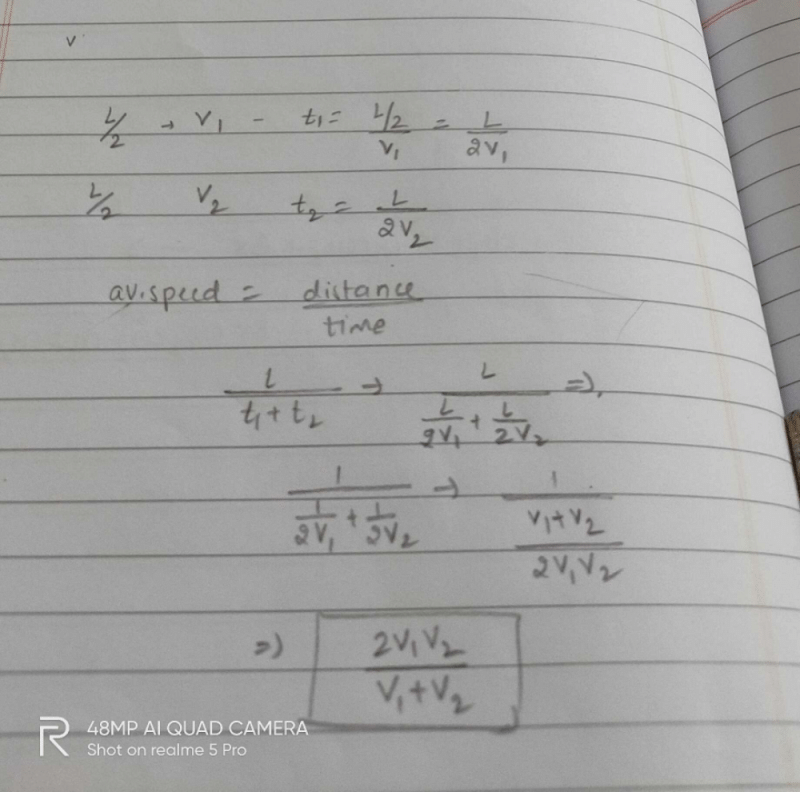 v
L/2 → V₁ - t₁ = L/2 / V₁ = L / 2V₁
L/2 V₂ t₂ = L / 2V₂
av.speed = distance / time
L / t₁ + t₂ → L / L/2V₁ + L/2V₂ ⇒
1 / 1/2V₁ + 1/2V₂ → 1 / V₁+V₂ / 2V₁V₂
⇒ 2V₁V₂ / V₁+V₂
R 48MP AI QUAD CAMERA
Shot on realme 5 Pro